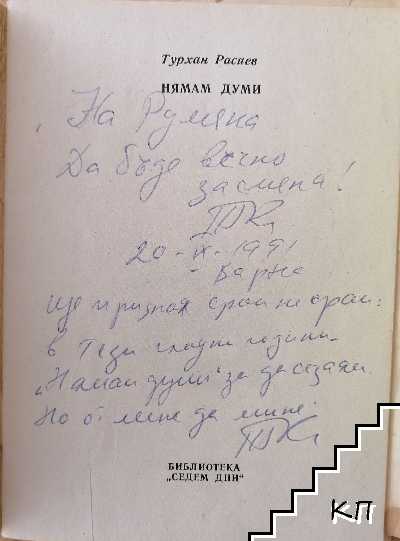 Турхан Расиев
НЯМАМ ДУМИ
На Румяна
Да бъде вечно
засмяна!
20-IX-1991
Варна
Ще призная срам не срам:
в тези гладни години
„Нямам думи" за да създам.
Но от мене да мине!
БИБЛИОТЕКА
„СЕДЕМ ДНИ"
КП